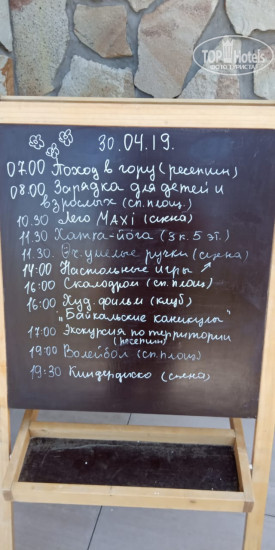 TOPHotels
30.04.19.
07.00 Поход в гору (ресепшн)
08.00 Зарядка для детей и
взрослых (сп. площ.)
10.30 Лего MAXI (сцена)
11.30 Хатха-йога (3 к. 5 эт.)
11.30. Оч. умелые ручки (сцена)
14:00 Настольные игры ↗
16:00 Скалодром (сп. площ)
16:00 Худ. фильм (клуб)
"Байкальские каникулы"
17:00 Экскурсия по территории
(ресепшн)
19:00 Волейбол (сп. площ)
19:30 Киндердиско (сцена)